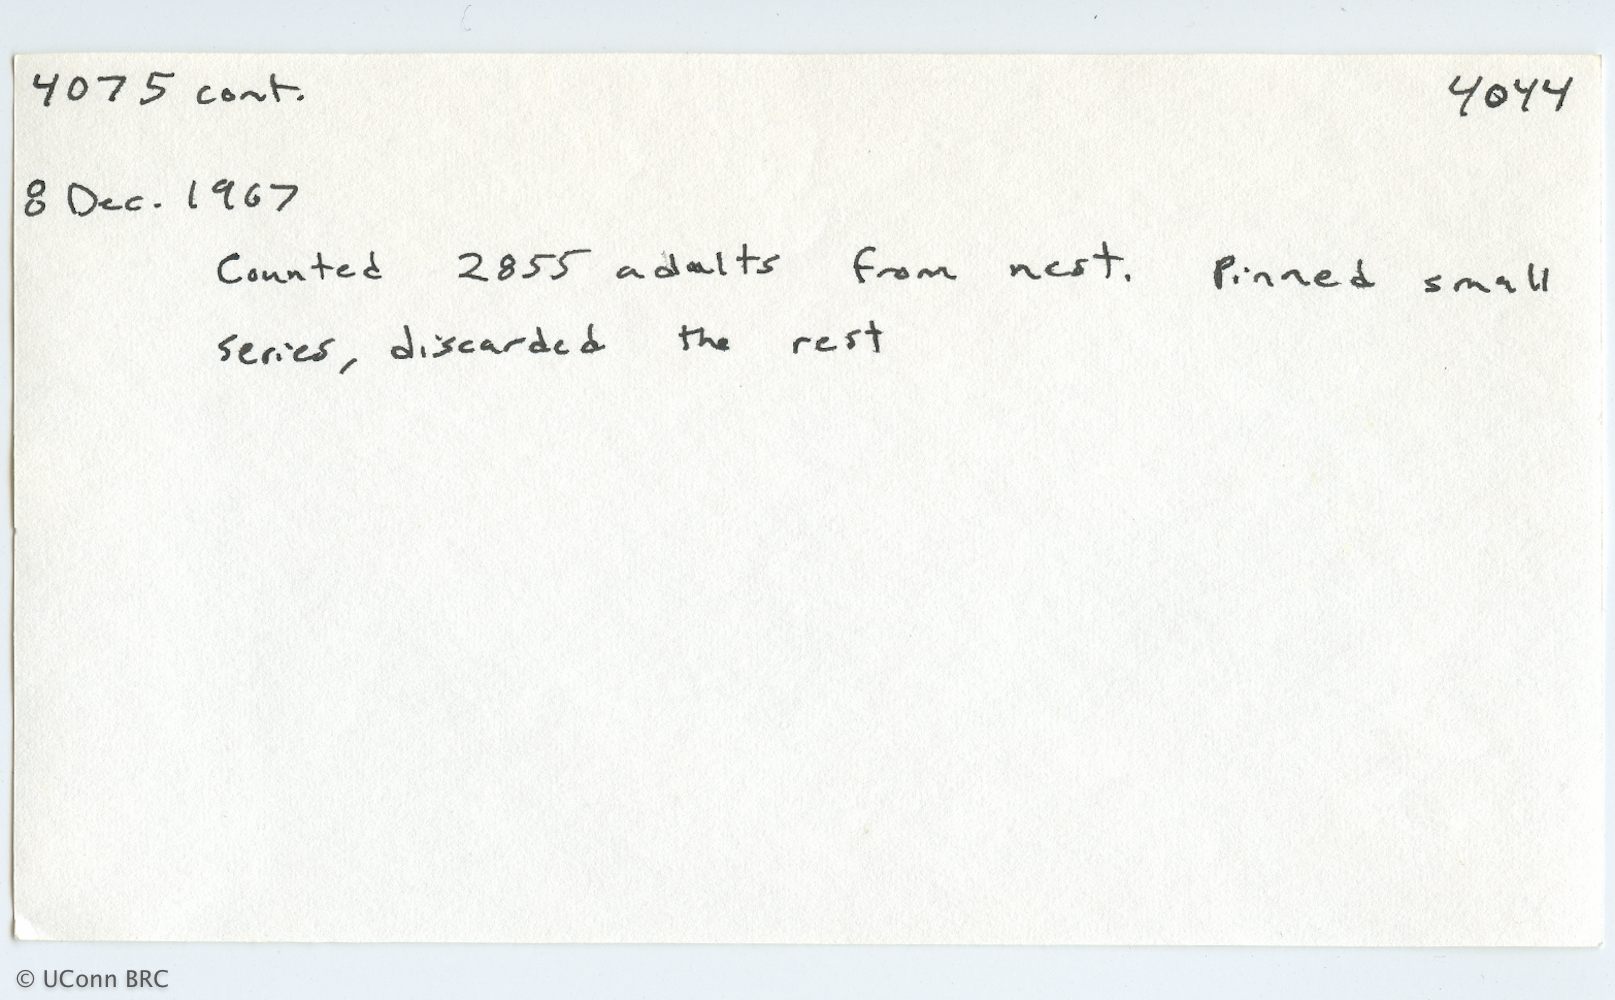 4075 cont. 4044
8 Dec. 1967
Counted 2855 adults from nest. Pinned small
series, discarded the rest
© UConn BRC